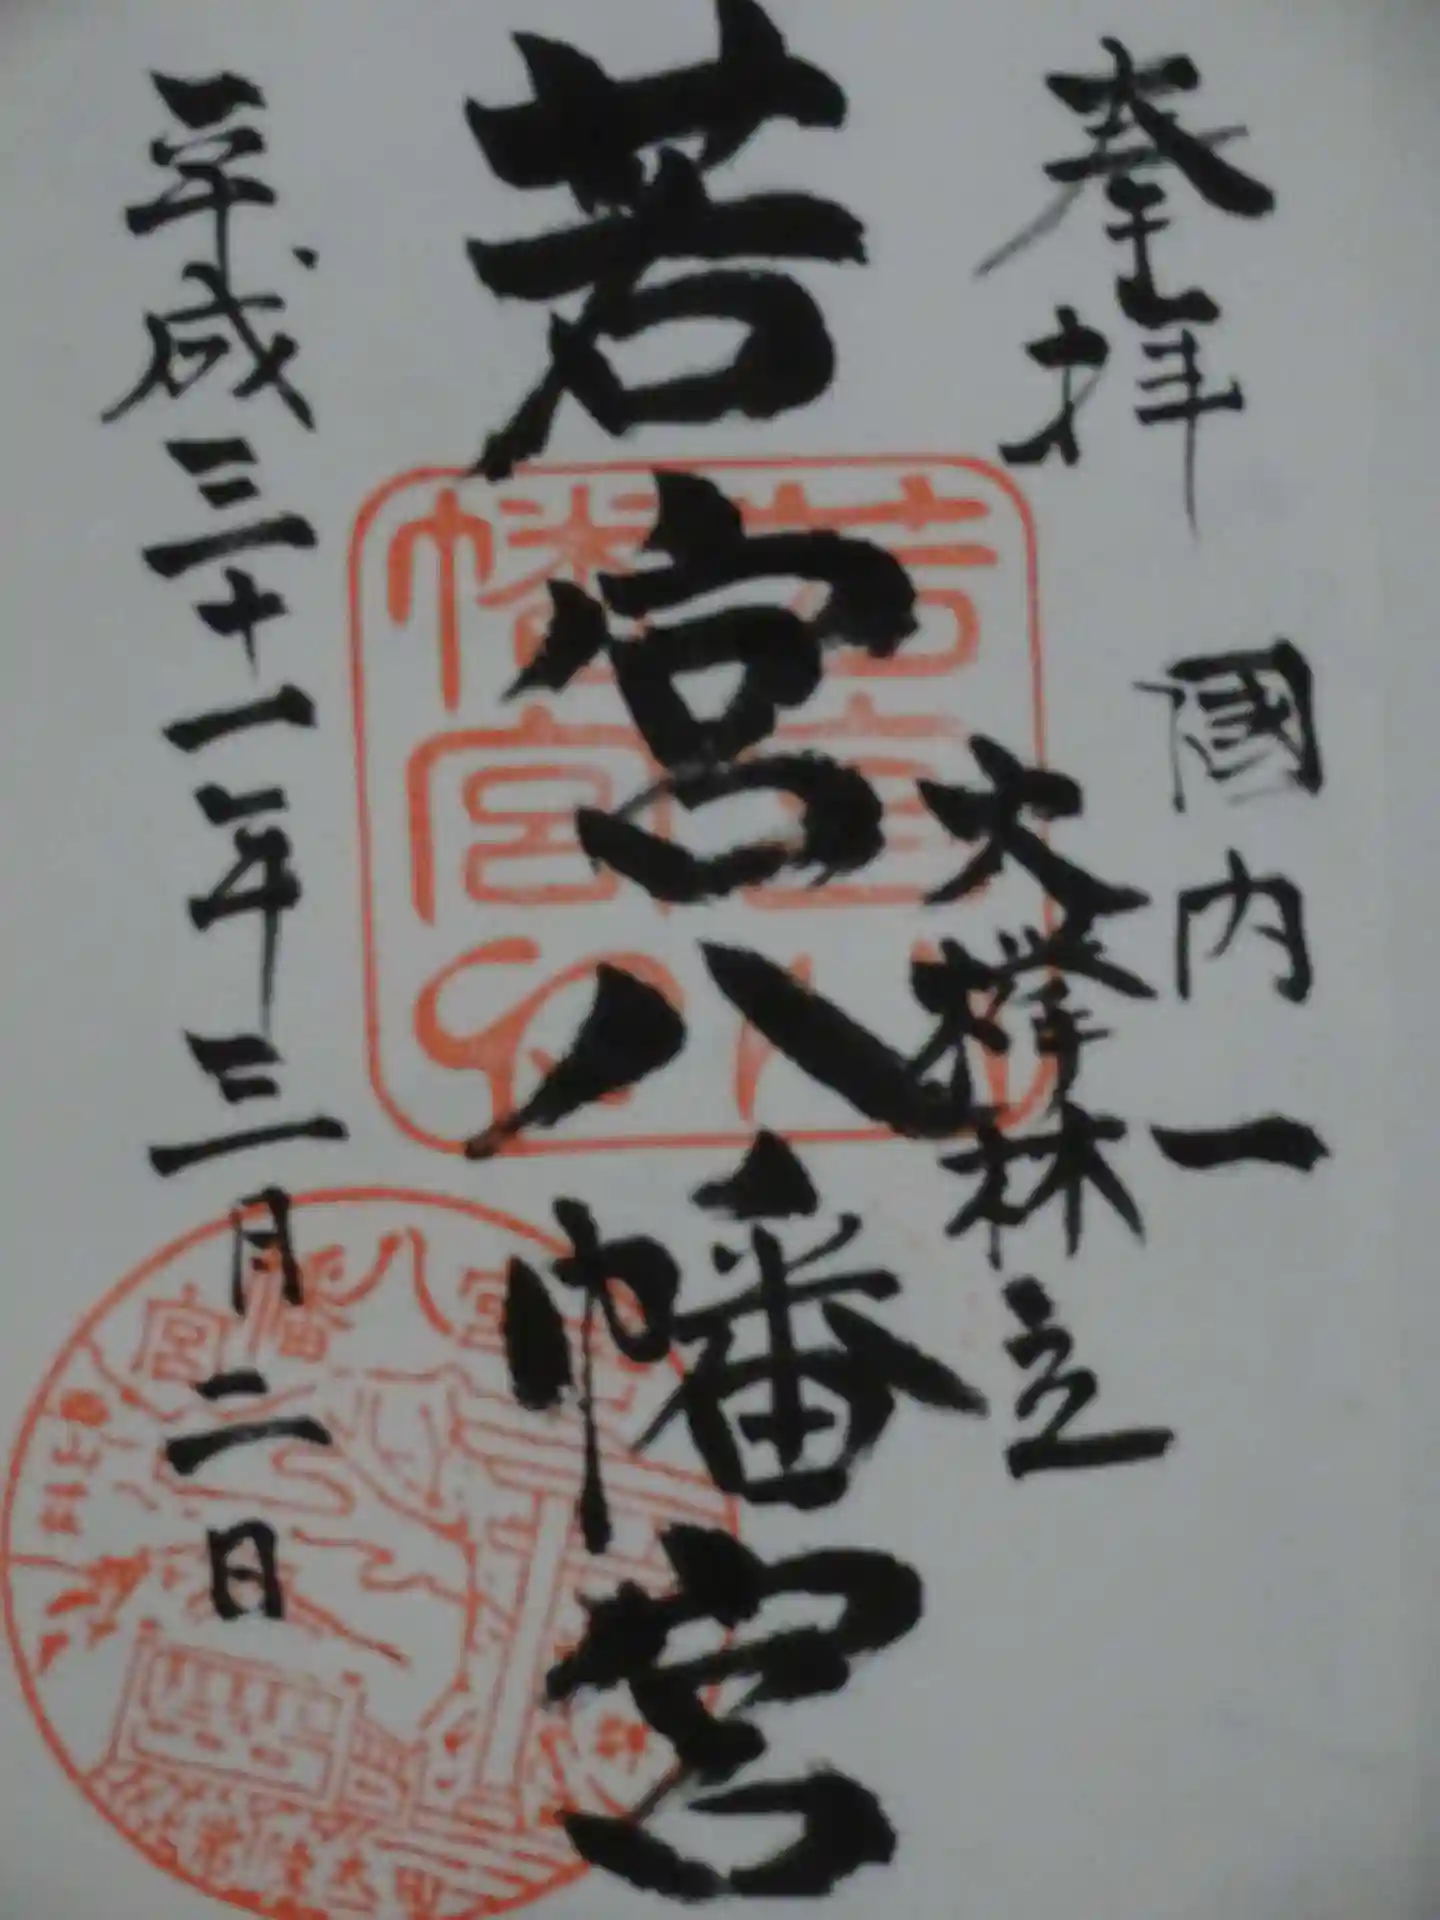 奉拝
國内一
大欅林立
若宮八幡宮
若宮八
幡宮
平成三十一年三月二日
宮幡八宮
常陸太田